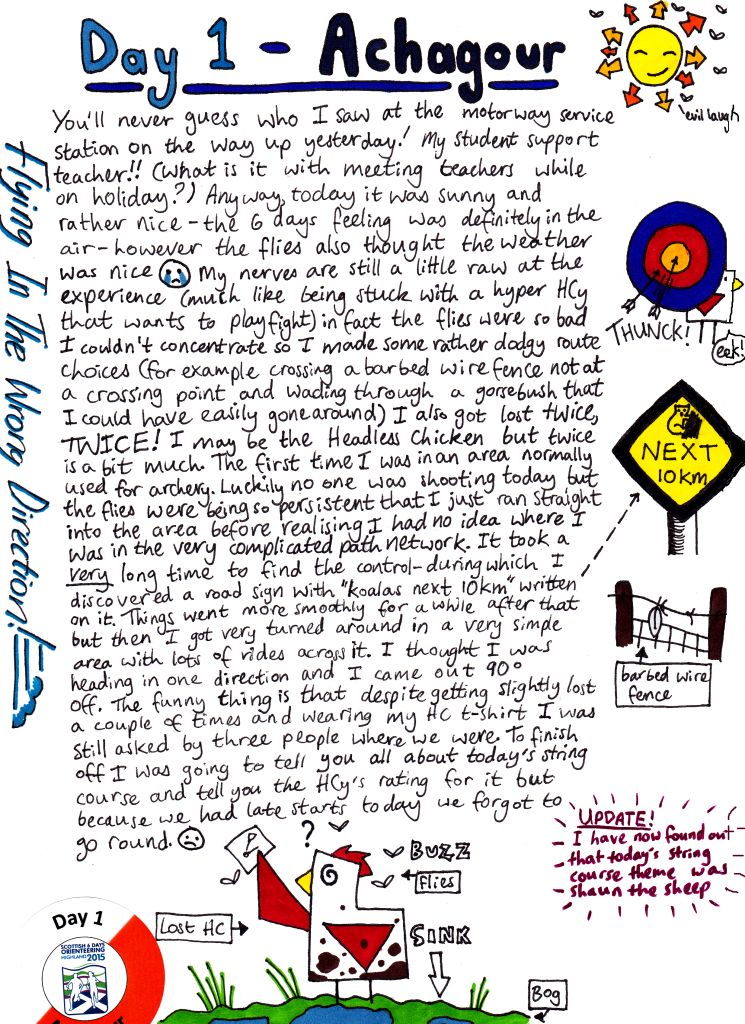 Day 1 - Achagour
'evil laugh'
Flying In The Wrong Direction!
You'll never guess who I saw at the motorway service
station on the way up yesterday! My student support
teacher!! (What is it with meeting teachers while
on holiday?) Anyway, today it was sunny and
rather nice - the 6 days feeling was definitely in the
air - however the flies also thought the weather
was nice My nerves are still a little raw at the
experience (much like being stuck with a hyper HCy
that wants to playfight) in fact the flies were so bad
I couldn't concentrate so I made some rather dodgy route
choices (for example crossing a barbed wire fence not at
a crossing point and wading through a gorsebush that
I could have easily gone around) I also got lost twice,
TWICE! I may be the Headless Chicken but twice
is a bit much. The first time I was in an area normally
used for archery. Luckily no one was shooting today but
the flies were being so persistent that I just ran straight
into the area before realising I had no idea where I
was in the very complicated path network. It took a
very long time to find the control - during which I
discovered a road sign with "koalas next 10km" written
on it. Things went more smoothly for a while after that
but then I got very turned around in a very simple
area with lots of rides across it. I thought I was
heading in one direction and I came out 90°
off. The funny thing is that despite getting slightly lost
a couple of times and wearing my HC t-shirt I was
still asked by three people where we were. To finish
off I was going to tell you all about today's string
course and tell you the HCy's rating for it but
because we had late starts today we forgot to
go round.
THUNCK!
eek!
NEXT
10KM
barbed wire
fence
UPDATE!
- I have now found out
- that today's string
- course theme was
- shaun the sheep
?
?
BUZZ
flies
Lost HC
SINK
Bog
Day 1
SCOTTISH 6 DAYS
ORIENTEERING
HIGHLAND 2015